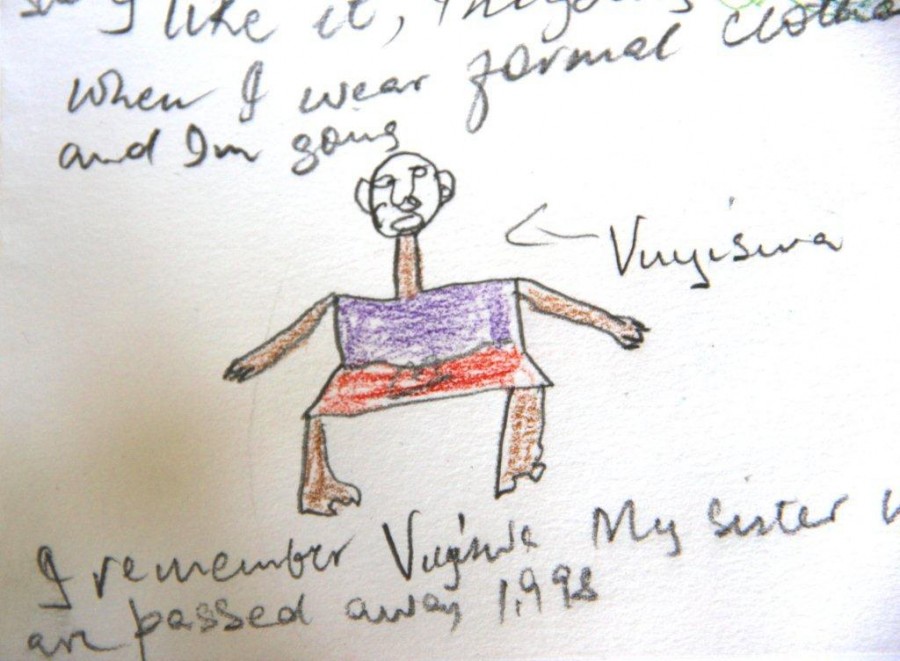 I like it,
when I wear formal clothes
and Im going
Vuyiswa
I remember Vuyiswa My sister
are passed away 1998